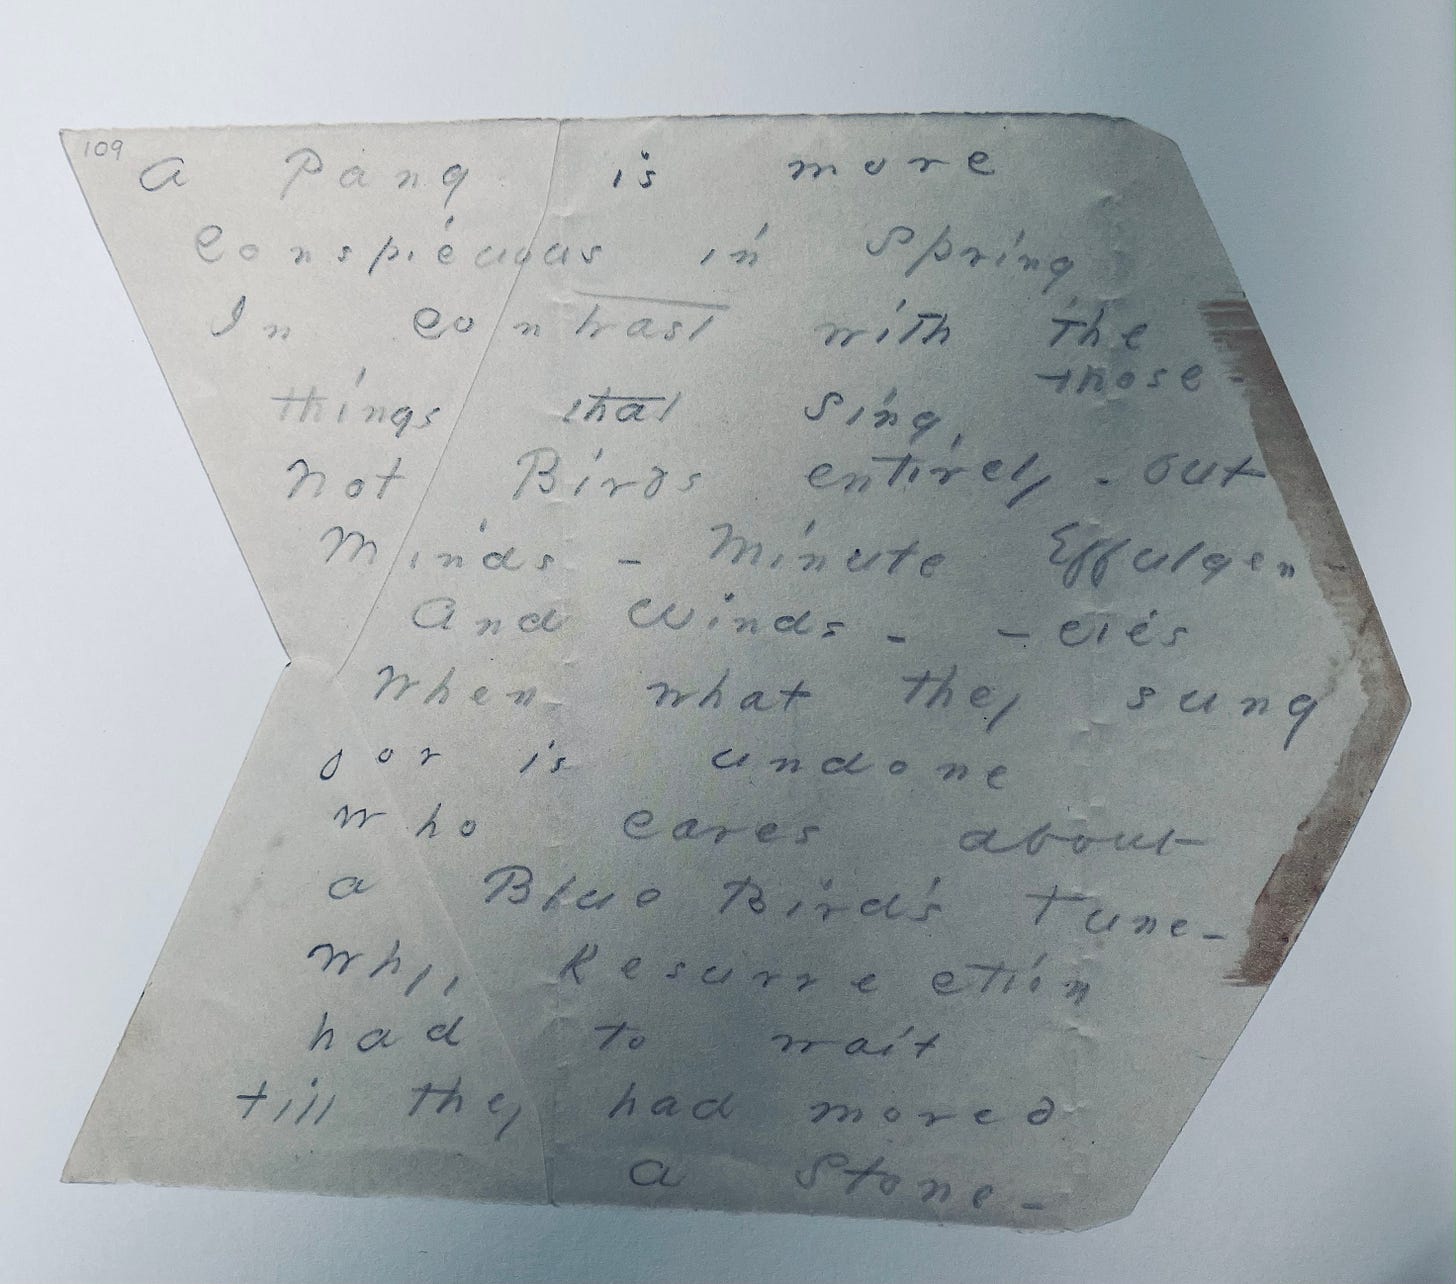 109
A Pang is more
Conspicuous in Spring
In contrast with the
those -
things that sing,
Not Birds entirely - but
Minds - Minute Effulgen
And Winds - - cies
When what they sung
for is undone
Who cares about
a Blue Bird's Tune -
Why, Resurrection
had to wait
till they had moved
a Stone -